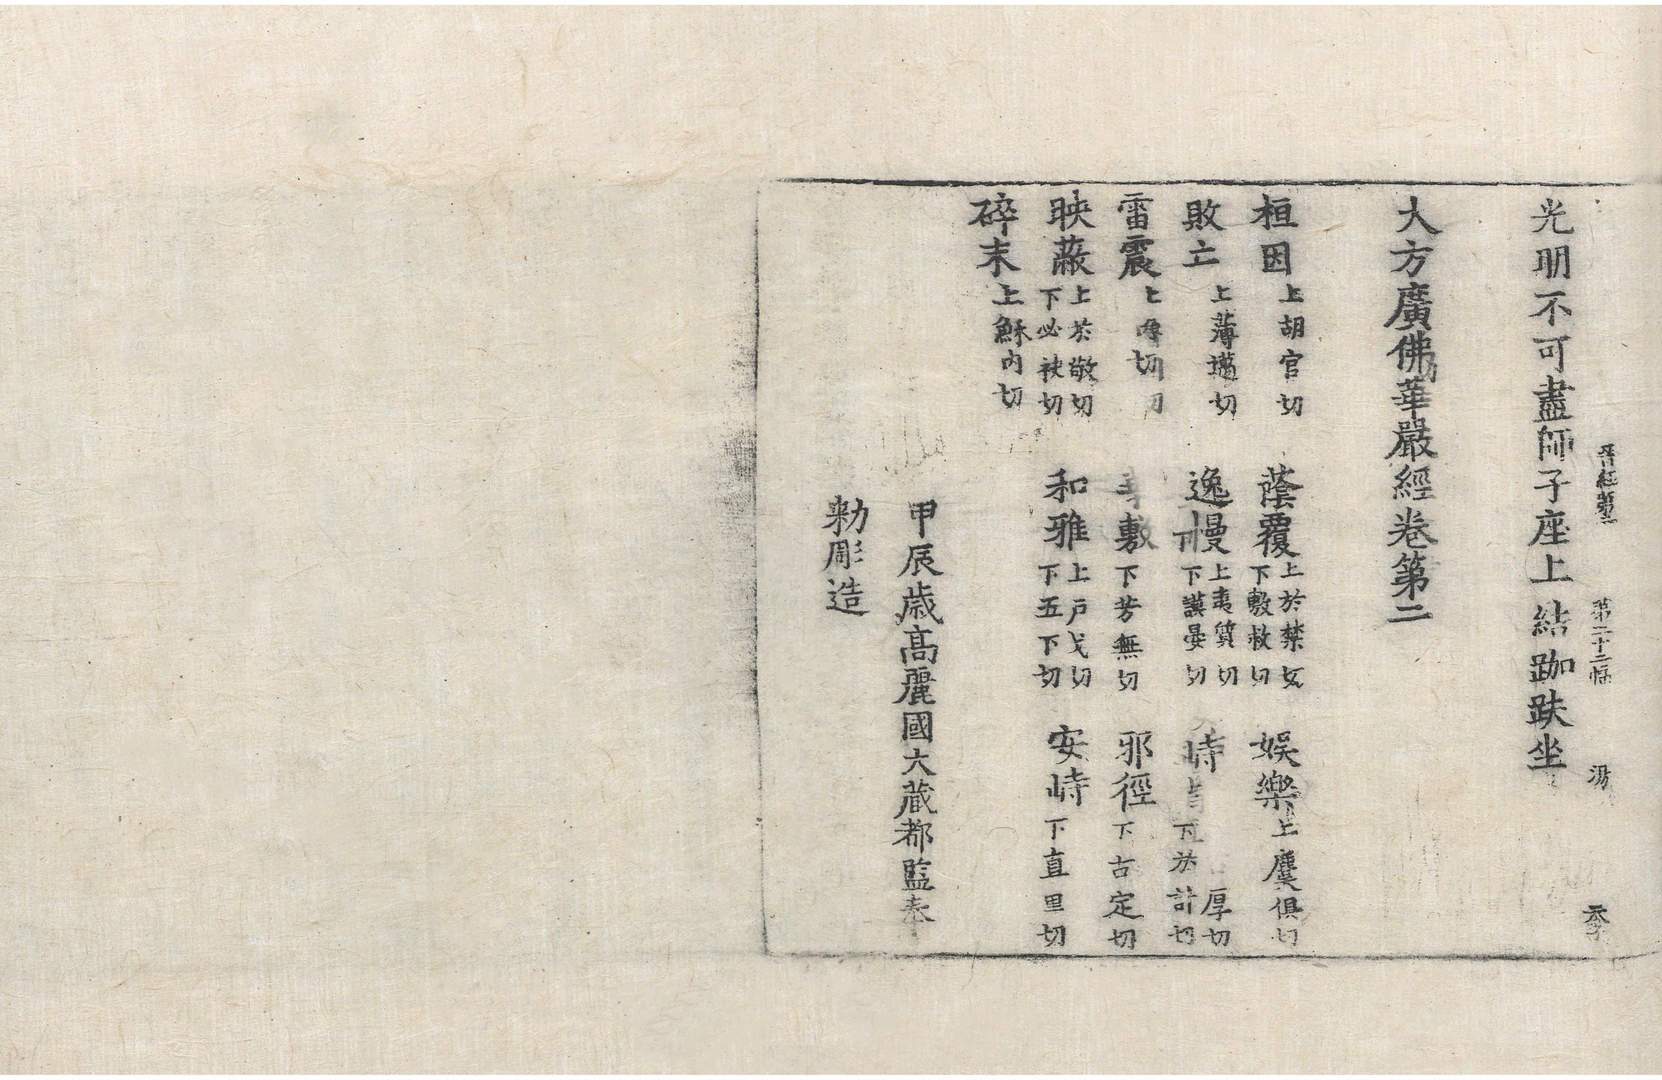 晋經第二 第二十二幅 湯
光明不可盡師子座上結跏趺坐
大方廣佛華嚴經卷第二
桓因上胡官切 蔭覆上於禁切下敷救切 娛樂上虞俱切
敗亡上薄邁切 逸慢上夷質切下謨晏切 厚切下於計切
雷震 敷下芳無切 邪徑下古定切
映蔽上於敬切下必袂切 和雅上戸戈切下五下切 安峙下直里切
碎末上穌内切
甲辰歲高麗國大藏都監奉
勑彫造